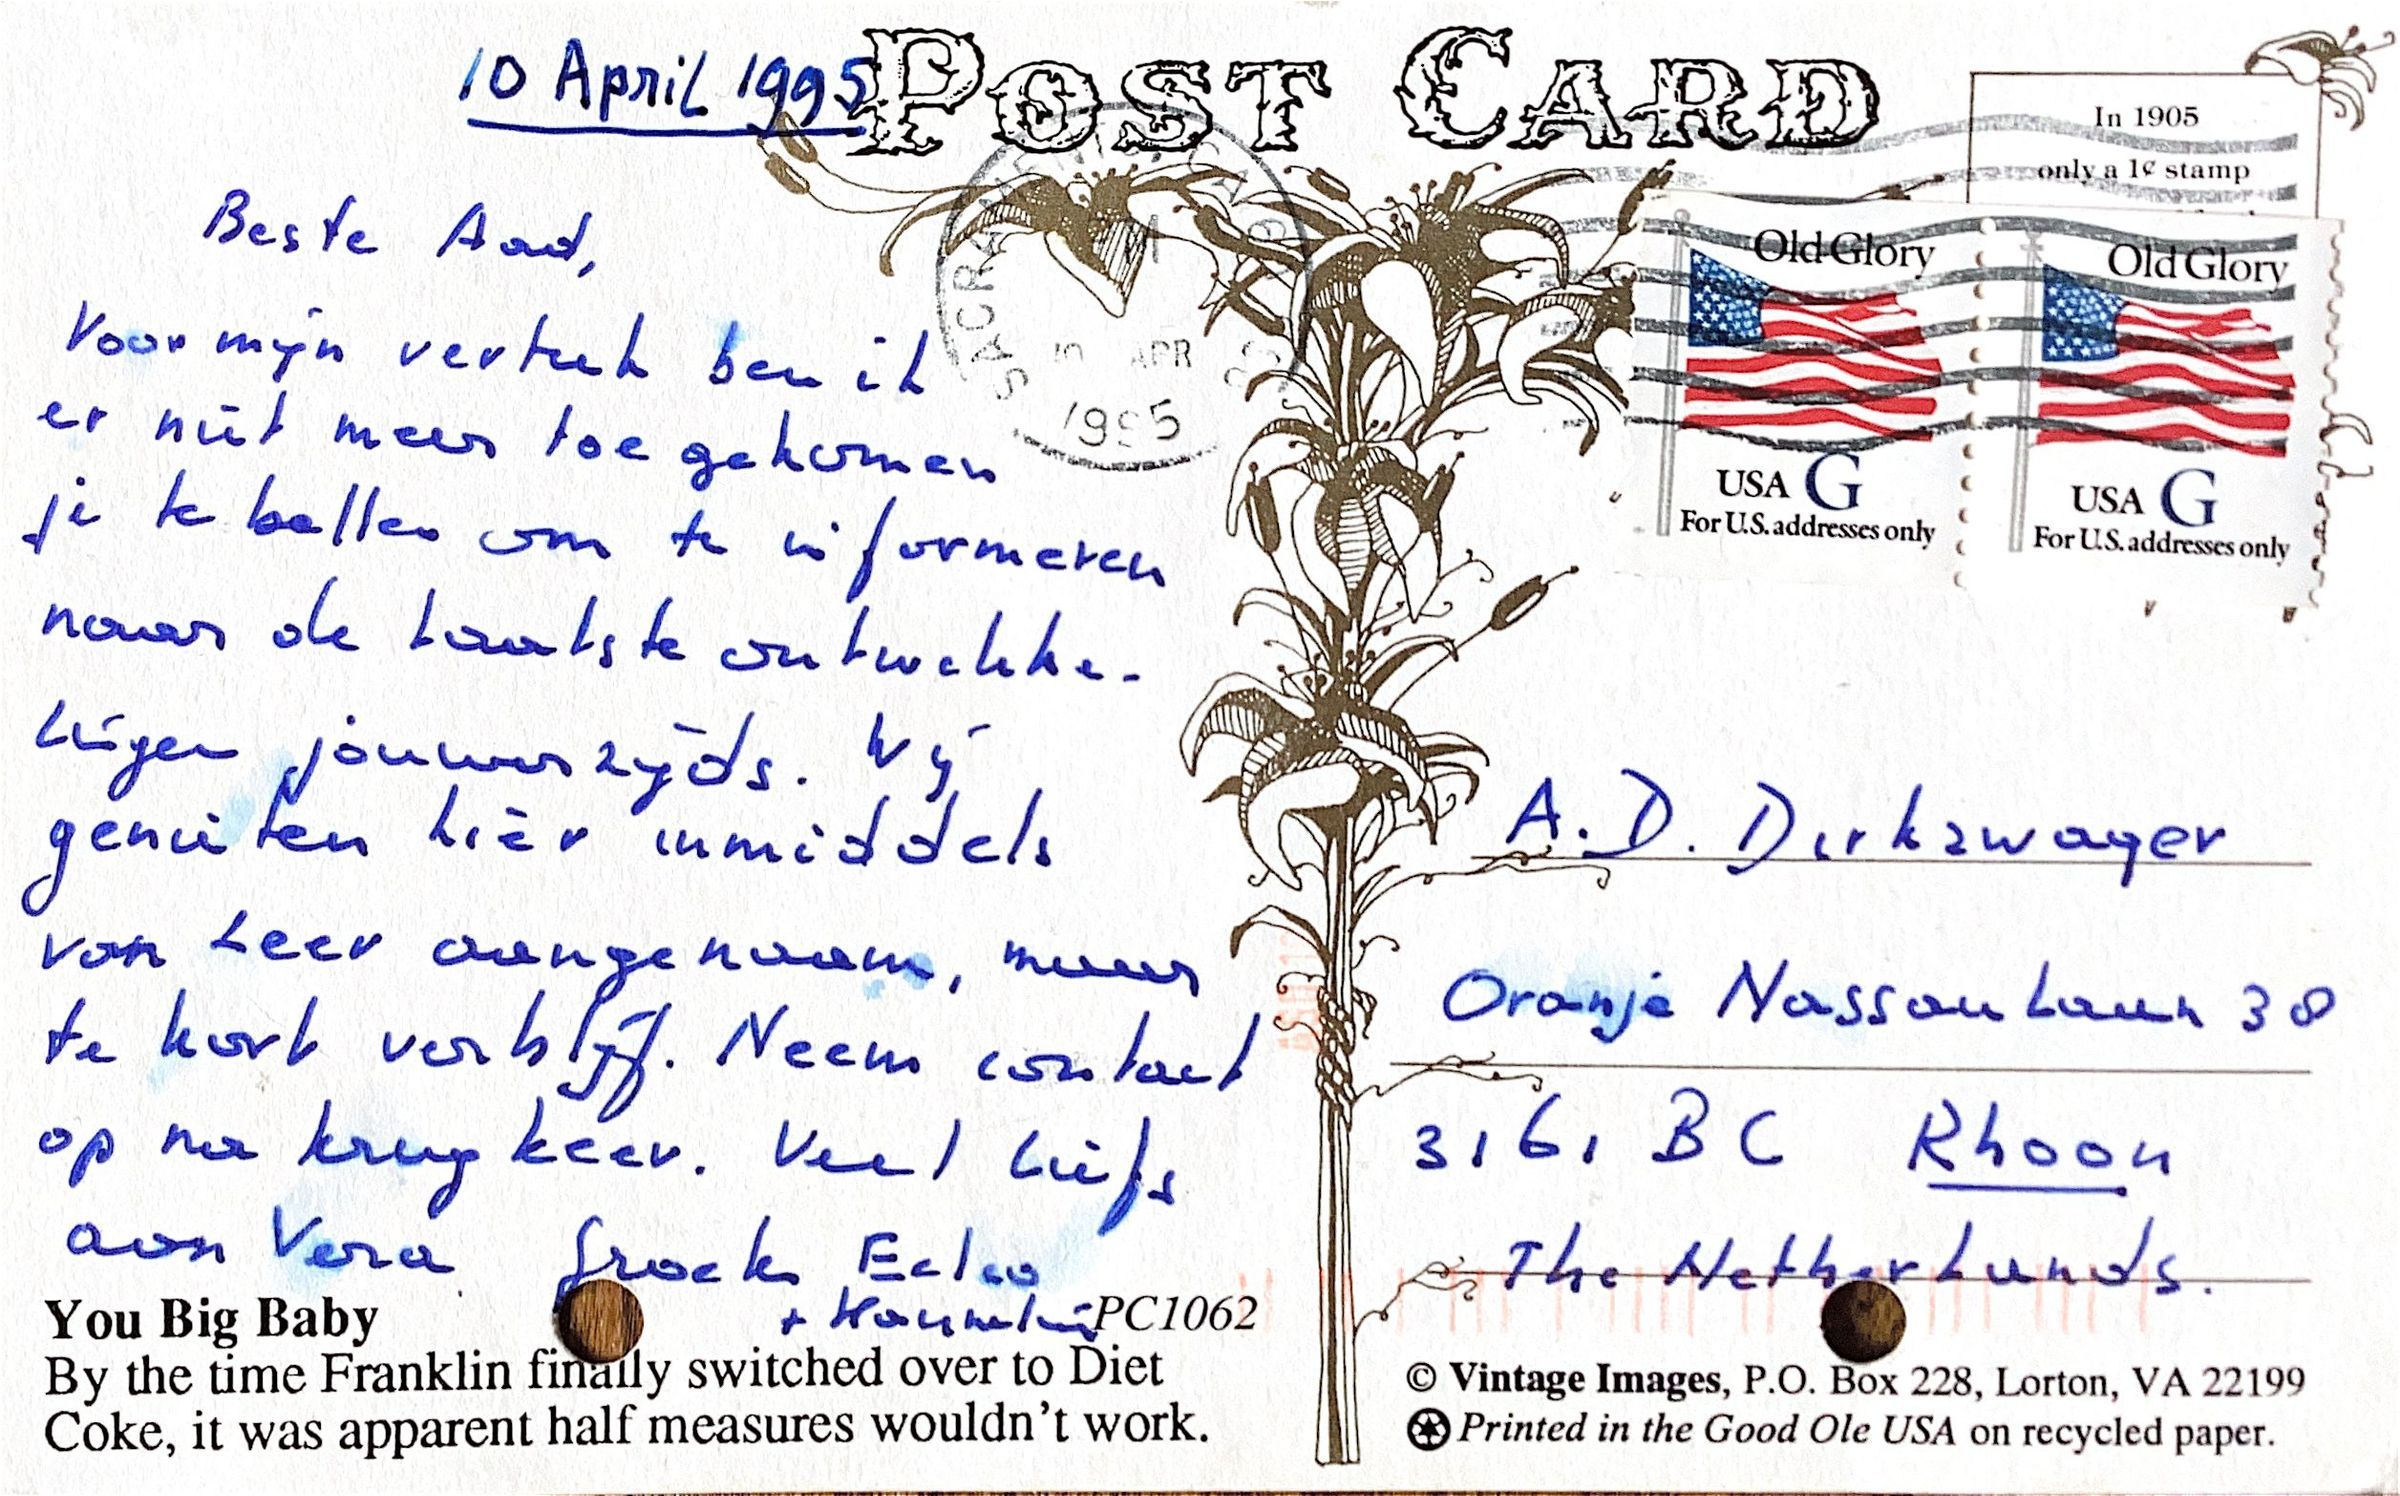 10 April 1995
POST CARD
In 1905
only a 1¢ stamp
SACRAMENTO
10 APR
1995
Old Glory
USA G
For U.S. addresses only
Old Glory
USA G
For U.S. addresses only
Beste Aad,
Voor mijn vertrek ben ik
er niet meer toe gekomen
je te bellen om te informeren
naar de laatste ontwikke-
lingen jouwerzijds. Wij
genieten hier inmiddels
van zeer aangenaam, maar
te kort verblijf. Neem contact
op na terugkeer. Veel liefs
aan Vera Groetes Eelco
+
PC1062
A. D. Dirkzwager
Oranje Nassaulaan 38
3161 BC Rhoon
The Netherlands.
You Big Baby
By the time Franklin finally switched over to Diet
Coke, it was apparent half measures wouldn't work.
© Vintage Images, P.O. Box 228, Lorton, VA 22199
Printed in the Good Ole USA on recycled paper.